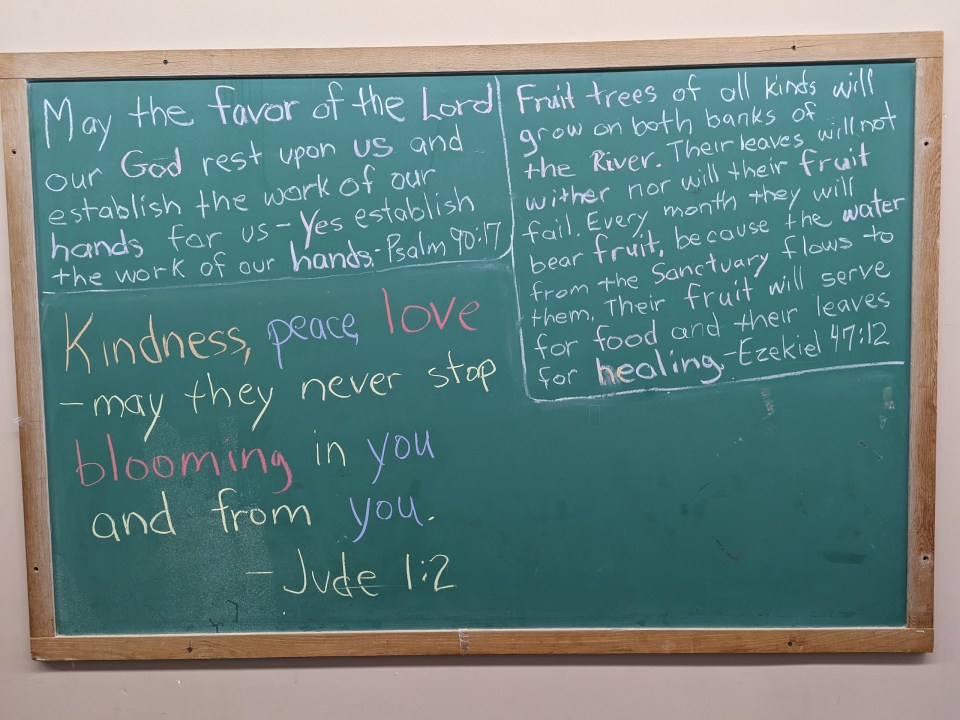 May the favor of the Lord
our God rest upon us and
establish the work of our
hands for us - Yes establish
the work of our hands. - Psalm 90:17
Fruit trees of all kinds will
grow on both banks of
the River. Their leaves will not
wither nor will their fruit
fail. Every month they will
bear fruit, because the water
from the Sanctuary flows to
them. Their fruit will serve
for food and their leaves
for healing. - Ezekiel 47:12
Kindness, peace, love
- may they never stop
blooming in you
and from you.
- Jude 1:2